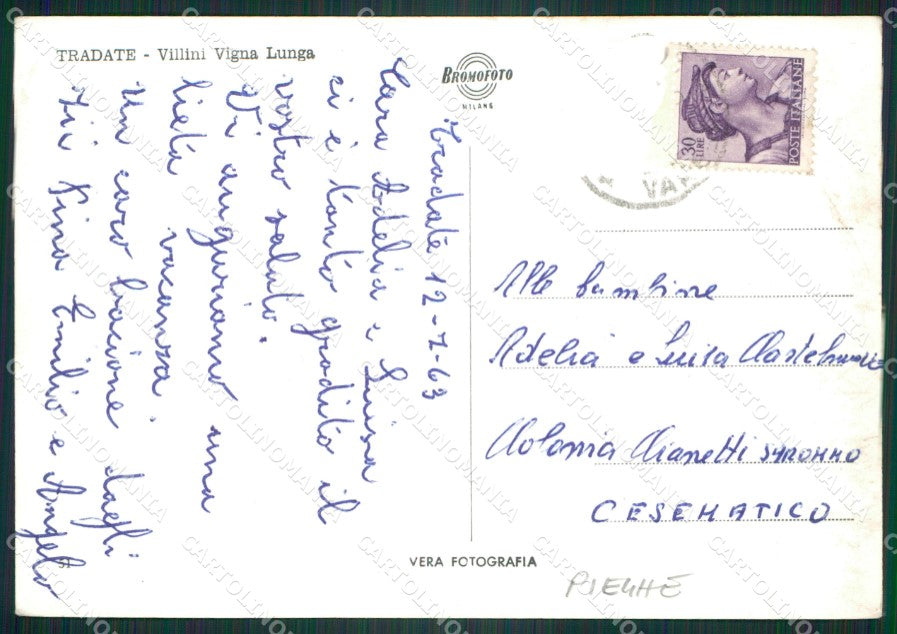 TRADATE - Villini Vigna Lunga
BROMOFOTO
MILANO
30 LIRE
POSTE ITALIANE
VA
Tradate 12-7-63
Cara Adelia e Luisa
ci è tanto gradito il
vostro saluto.
Vi auguriamo una
lieta vacanza.
Un caro bacione dagli
Zii Pina Emilio e Angelo
Alle bambine
Adelia e Luisa
Colonia Gianetti SARONNO
CESENATICO
51
VERA FOTOGRAFIA
CARTOLINOMANIA